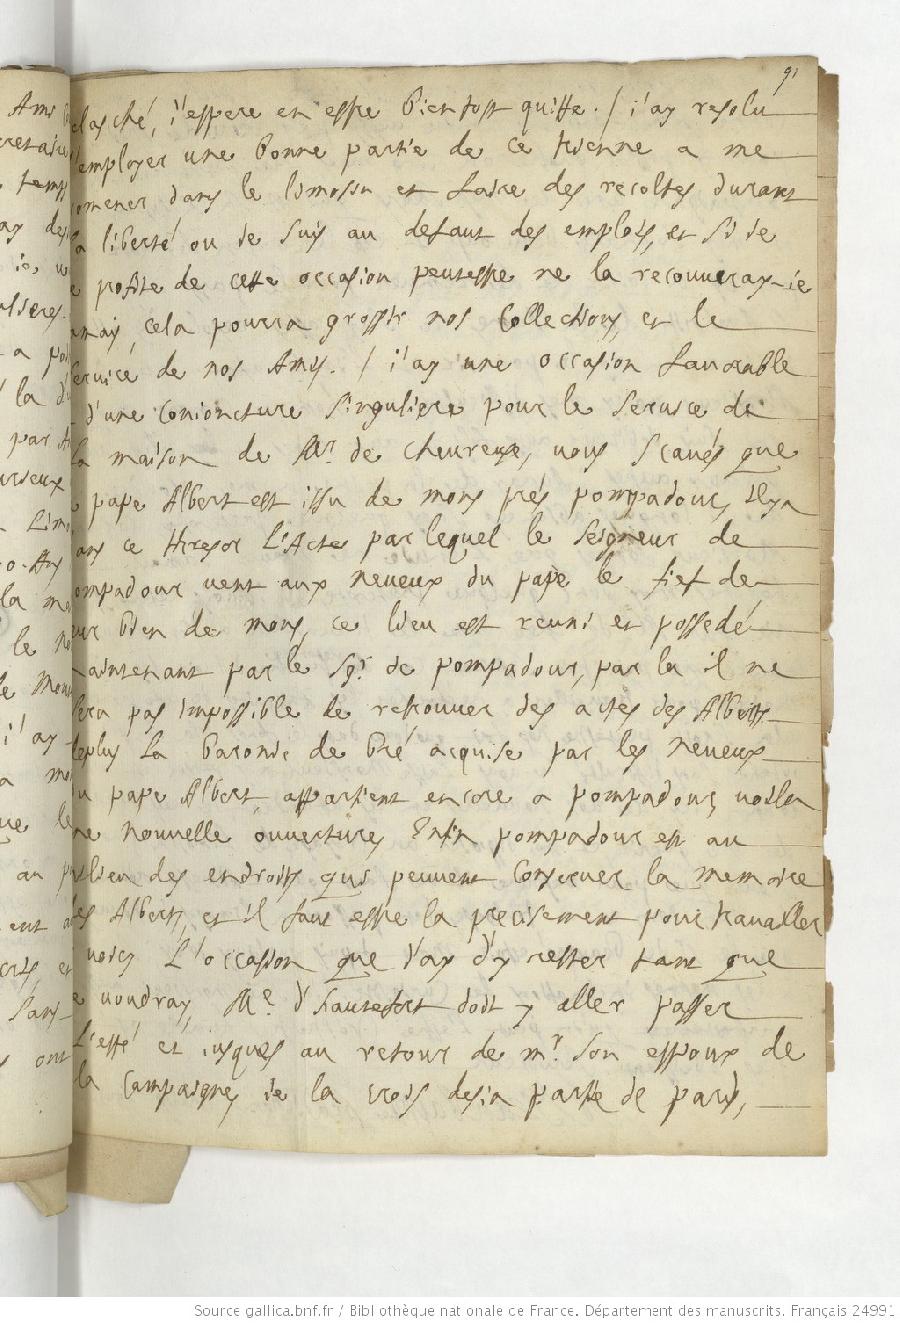 91
lasché, j'espere en estre bientost quitte. / j'ay resolu
employer une bonne partie de ce trienne a me
omener dans le limosin et faire des recoltes durant
la liberté ou je suis au defaut des emplois, et si je
e profite de cette occasion peutestre ne la recouvuray-ie
amais, cela pourra grossir nos Collections, et le
service de nos Amis. / j'ay une occasion favorable
d'une conioncture singuliere pour le service de
la maison de Mr. de cheureuse, vous scaués que
e pape Albert est issu de mons prés pompadour, Ilya
ans ce thresor L'Acte par lequel le seigneur de
ompadour vent aux neueux du pape le fief de
ur bien de mons, ce lieu est reuni et possedé
maintenant par le Sgr. de pompadour, par la il ne
sera pas impossible de retrouver des actes des Alberts
deplus La baronie de bré acquise par les neueux
u pape Albert appartient encore a pompadour, voila
ne nouvelle ouverture, Enfin pompadour est au
milieu des endroits qui peuuent Conseruer la memoire
des Alberts, et il faut estre la precisement pour trauailler
voicy L'occasion que j'ay d'y rester tant que
e voudray Me. d'hautefort doit y aller passer
L'esté et iusques au retour de mr. son espoux de
la campaigne, ie la crois desia partie de paris,
Source gallica.bnf.fr / Bibliothèque nationale de France. Département des manuscrits. Français 24991